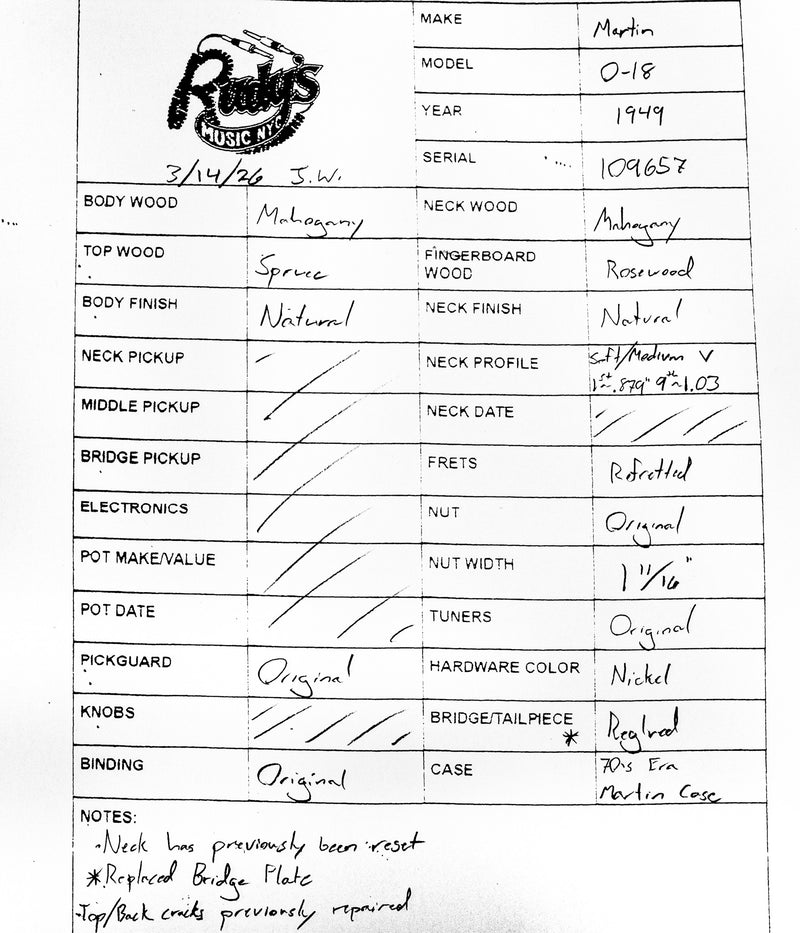 Rudy's
MUSIC NYC
3/14/26 J.W.
MAKE Martin
MODEL O-18
YEAR 1949
SERIAL 109657
BODY WOOD Mahogany NECK WOOD Mahogany
TOP WOOD Spruce FINGERBOARD WOOD Rosewood
BODY FINISH Natural NECK FINISH Natural
NECK PICKUP NECK PROFILE Soft/Medium V
1st~.879" 9th~1.03
MIDDLE PICKUP NECK DATE
BRIDGE PICKUP FRETS Refretted
ELECTRONICS NUT Original
POT MAKE/VALUE NUT WIDTH 1 11/16"
POT DATE TUNERS Original
PICKGUARD Original HARDWARE COLOR Nickel
KNOBS BRIDGE/TAILPIECE * Reglued
BINDING Original CASE 70's Era
Martin Case
NOTES:
-Neck has previously been reset
*Replaced Bridge Plate
-Top/Back cracks previously repaired